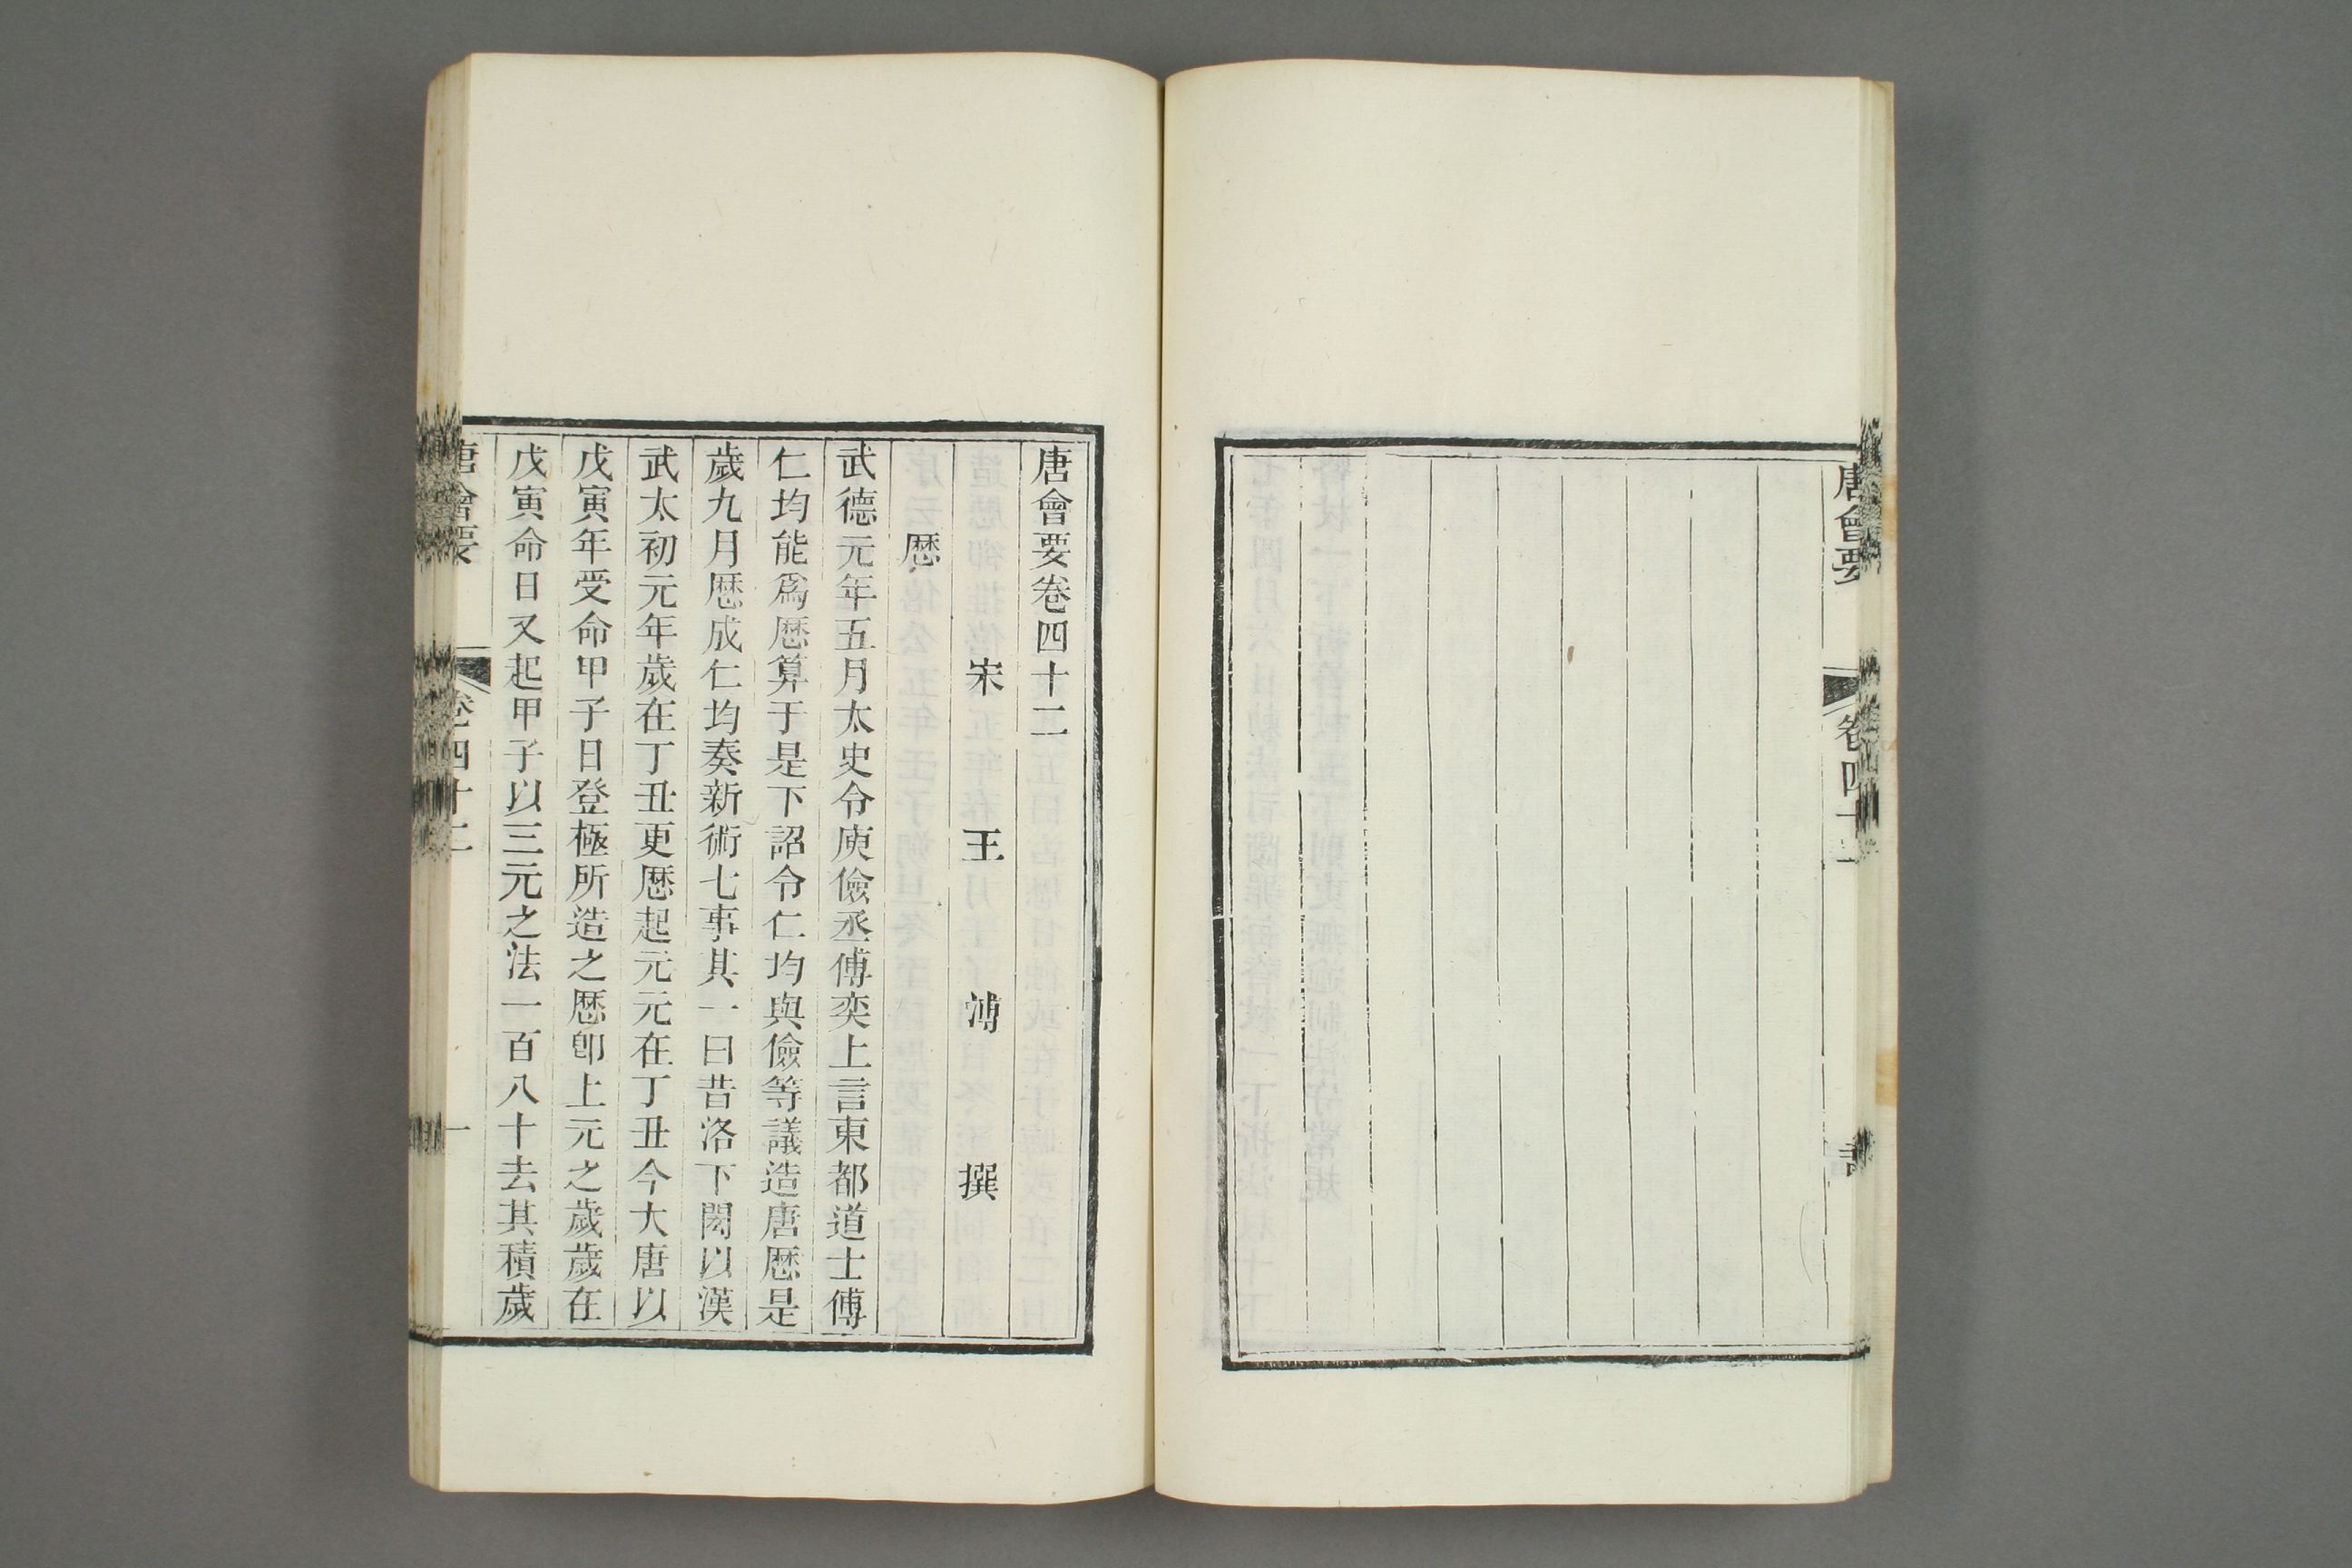 唐會要
唐會要卷四十二
宋 王 溥 撰
厯
武德元年五月太史令庾儉丞傅奕上言東都道士傅
仁均能爲厯算于是下詔令仁均與儉等議造唐厯是
歲九月厯成仁均奏新術七事其一曰昔洛下閎以漢
武太初元年歲在丁丑更厯起元元在丁丑今大唐以
戊寅年受命甲子日登極所造之厯卽上元之歲歲在
戊寅命日又起甲子以三元之法一百八十去其積歲
唐會要 卷四十二 一